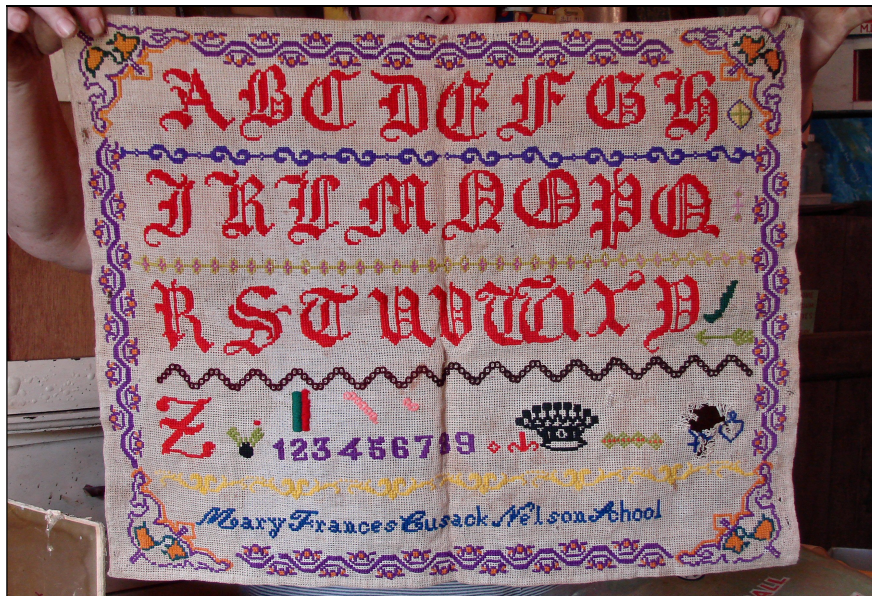 A B C D E F G H
I K L M N O P Q
R S T U V W X Y
Z 123456789
Mary Frances Cusack Nelson School